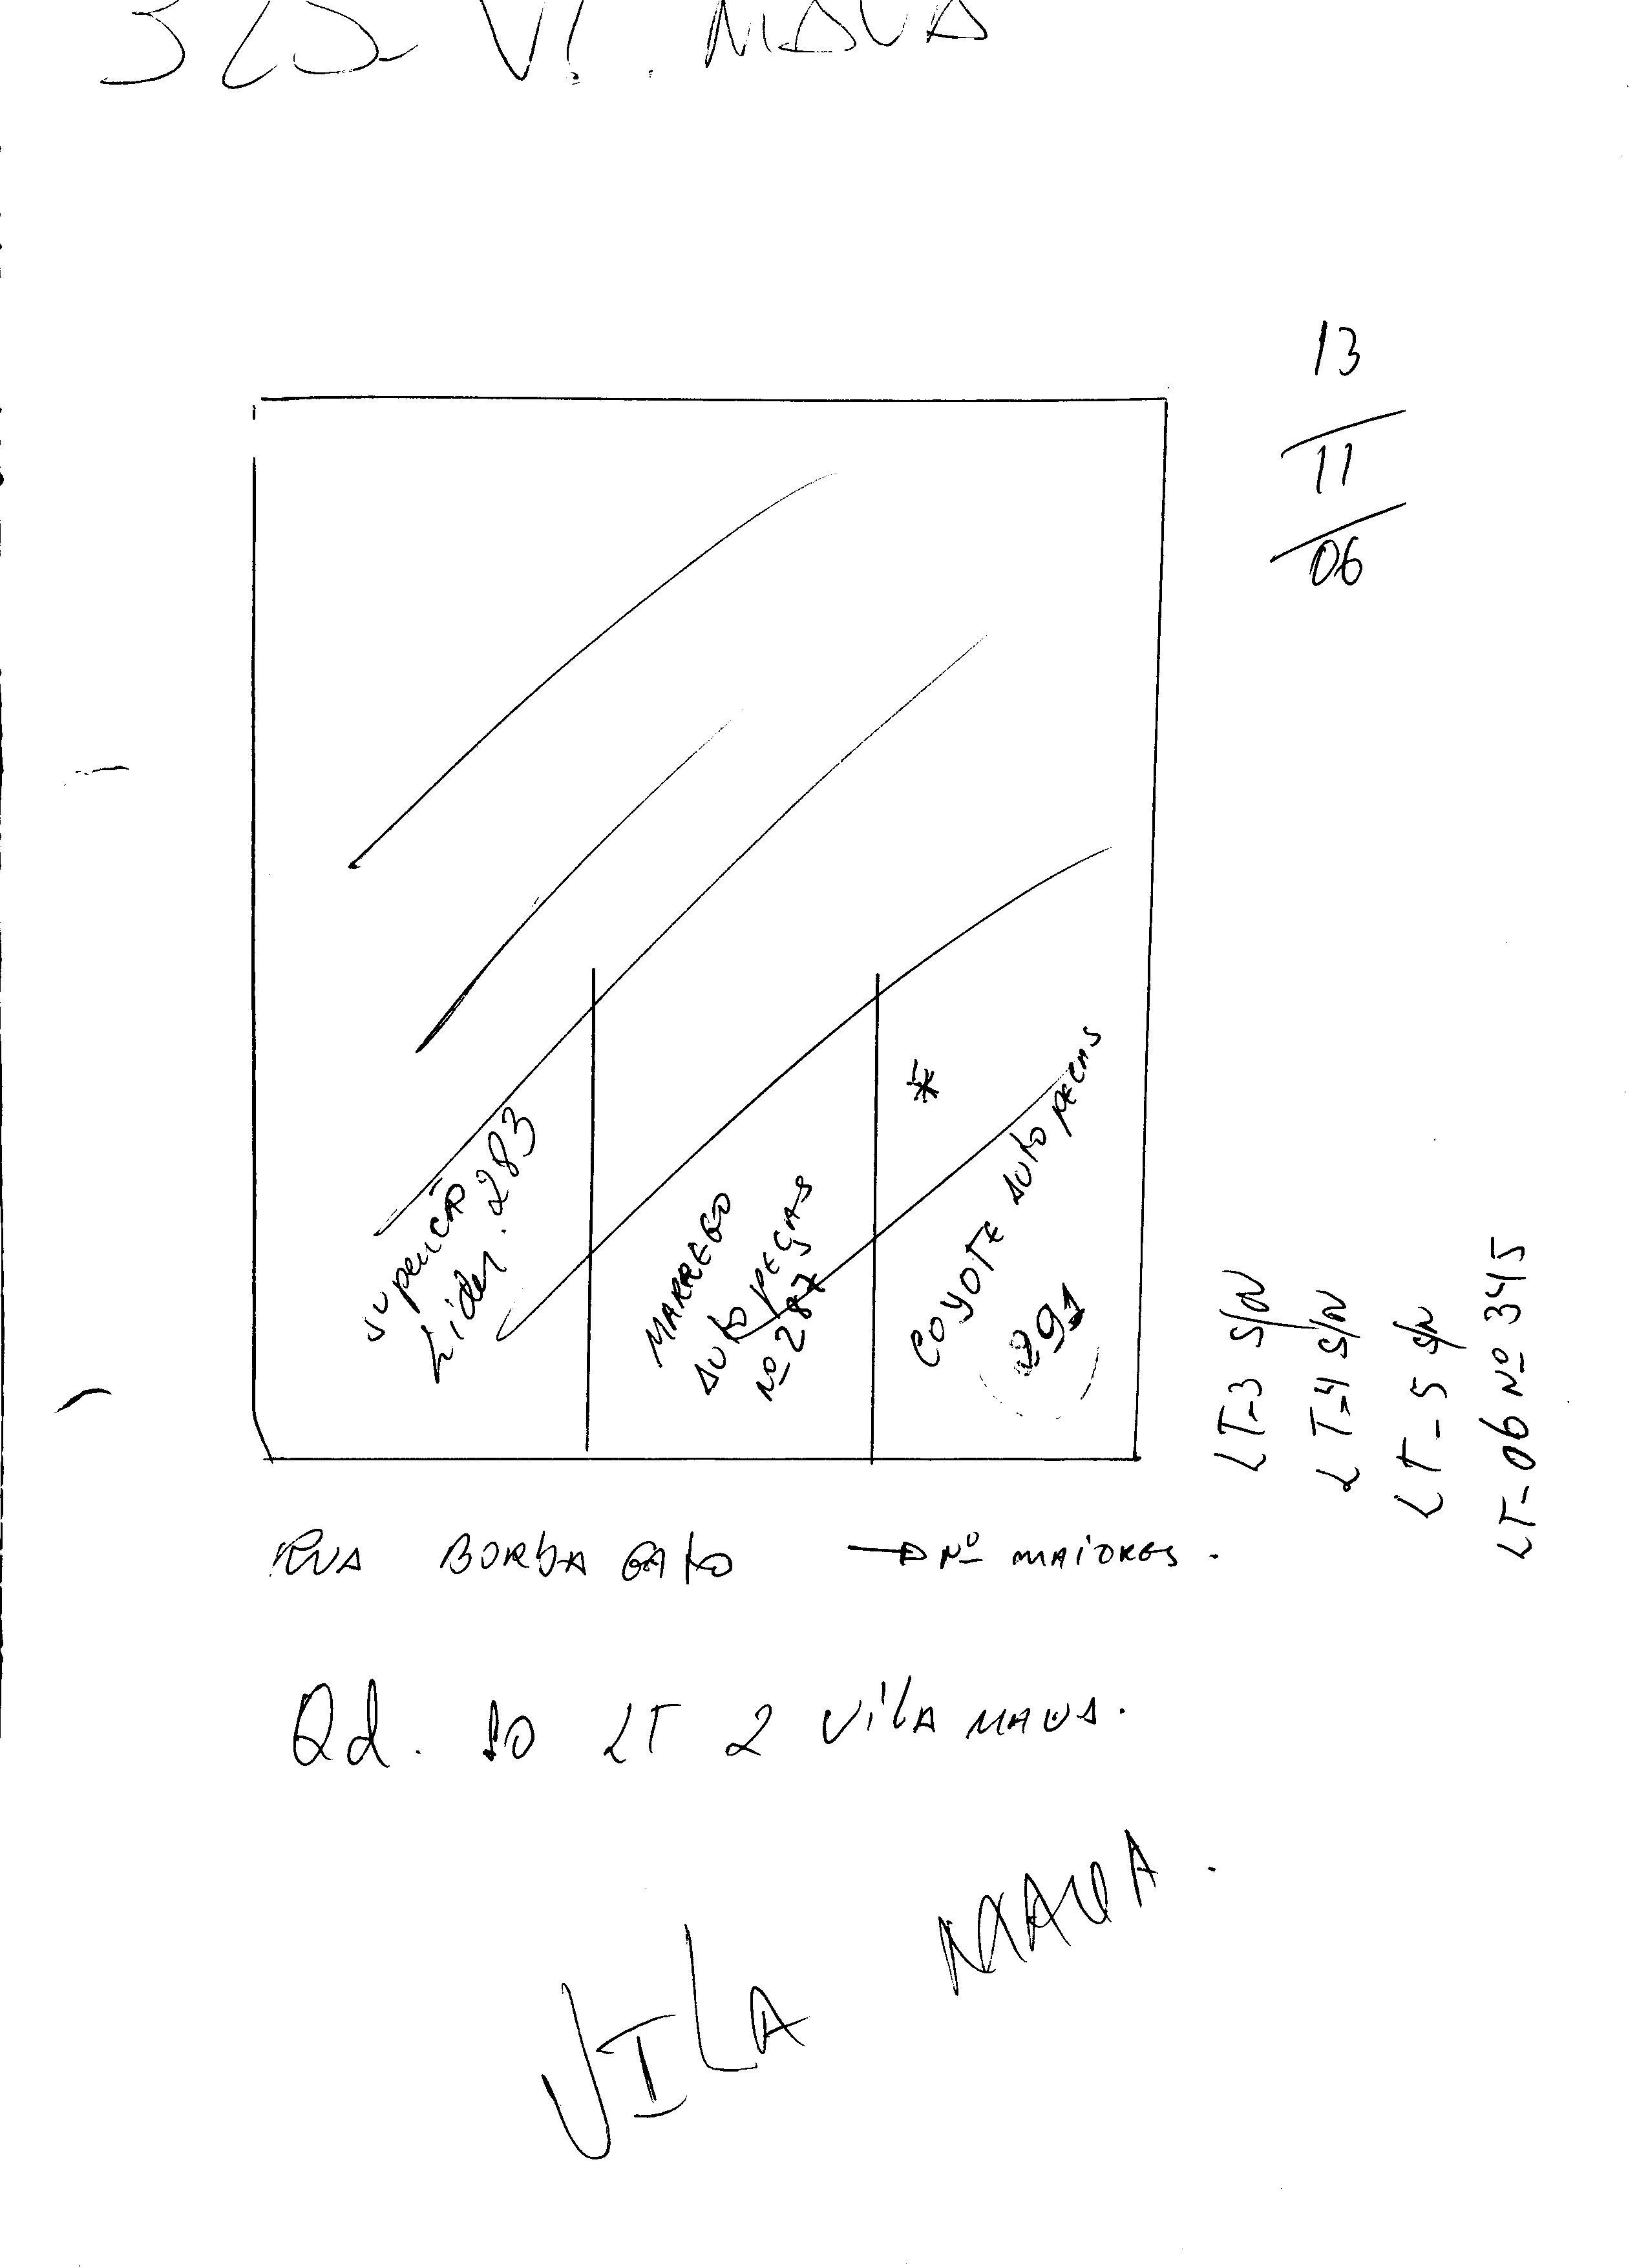 Vl. MAUA
13
11
06
Lider. 283
MARREGO
AUTO PEÇAS
Nº 287
*
COYOTE AUTO PECAS
291
LT-3 S/N
LT-4 S/N
LT-5 S/N
LT-06 Nº 345
RUA BORBA GATO → Nº MAIORES.
Qd. 10 LT 2 VILA MAUA.
VILA MAUA.